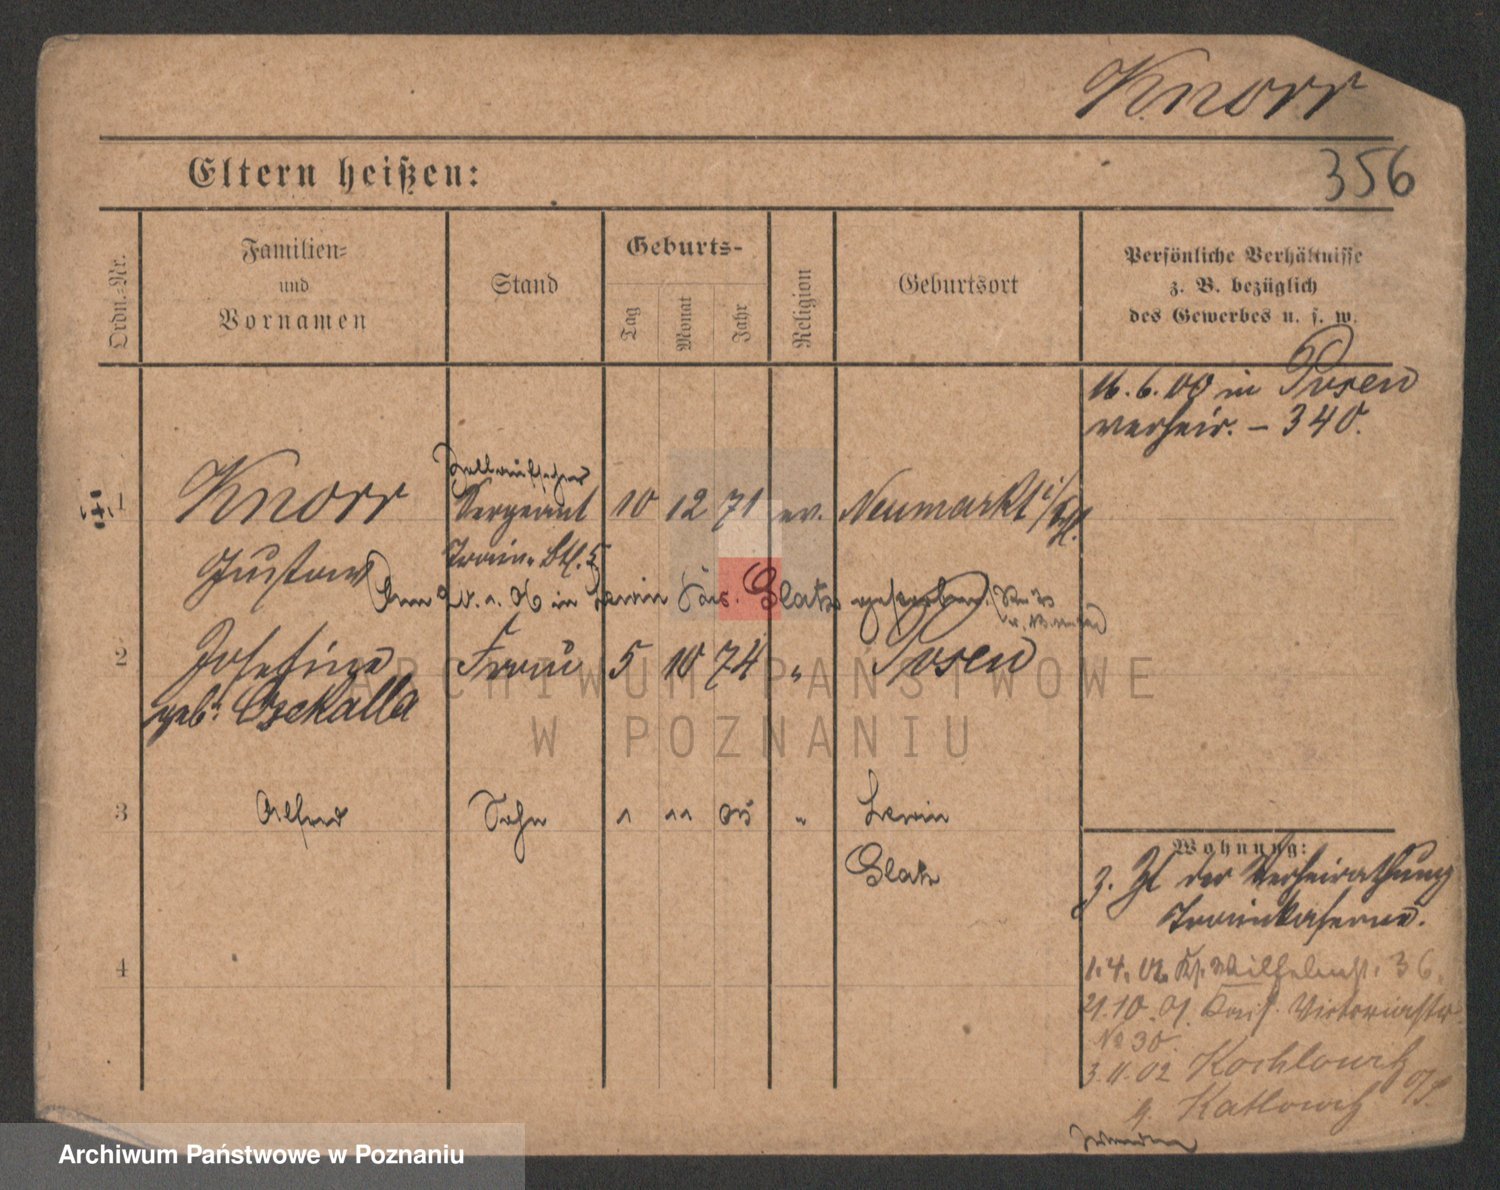 Knorr
356
Eltern heißen:
Ordn.-Nr.
Familien- und Vornamen
Stand
Geburts-
Tag
Monat
Jahr
Religion
Geburtsort
Persönliche Verhältnisse
z. B. bezüglich
des Gewerbes u. s. w.
16. 6. 00 in Posen
verheir. – 340.
1
Knorr
Sergeant
10 12 71 ev. Neumarkt i/Schl.
Gustav
Train. Btl. 5
in Lewin Glatz gestorben.
2
Josefine Frau 5 10 74 " Posen
geb. Czekalla
3
Alfred Sohn 1 11 05 " Lewin
Glatz
4
Wohnung:
z. Zt. der Verheirathung
Trainkaserne.
1. 4. Wilhelmst. 36.
21. 10. 01. Victoriastr.
No 30
3. 11. 02 Kochlowitz
Kattowitz O/S.
ARCHIWUM PAŃSTWOWE
W POZNANIU
Archiwum Państwowe w Poznaniu